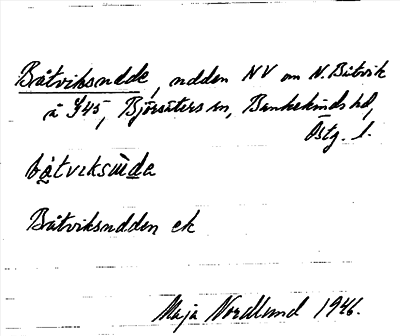 Båtviksudde, udden NV om N. Båtvik
å J45, Björsäters sn, Bankekinds hd,
Östg. l.
båtviksùde
Båtviksudden ek
Maja Nordlund 1946.